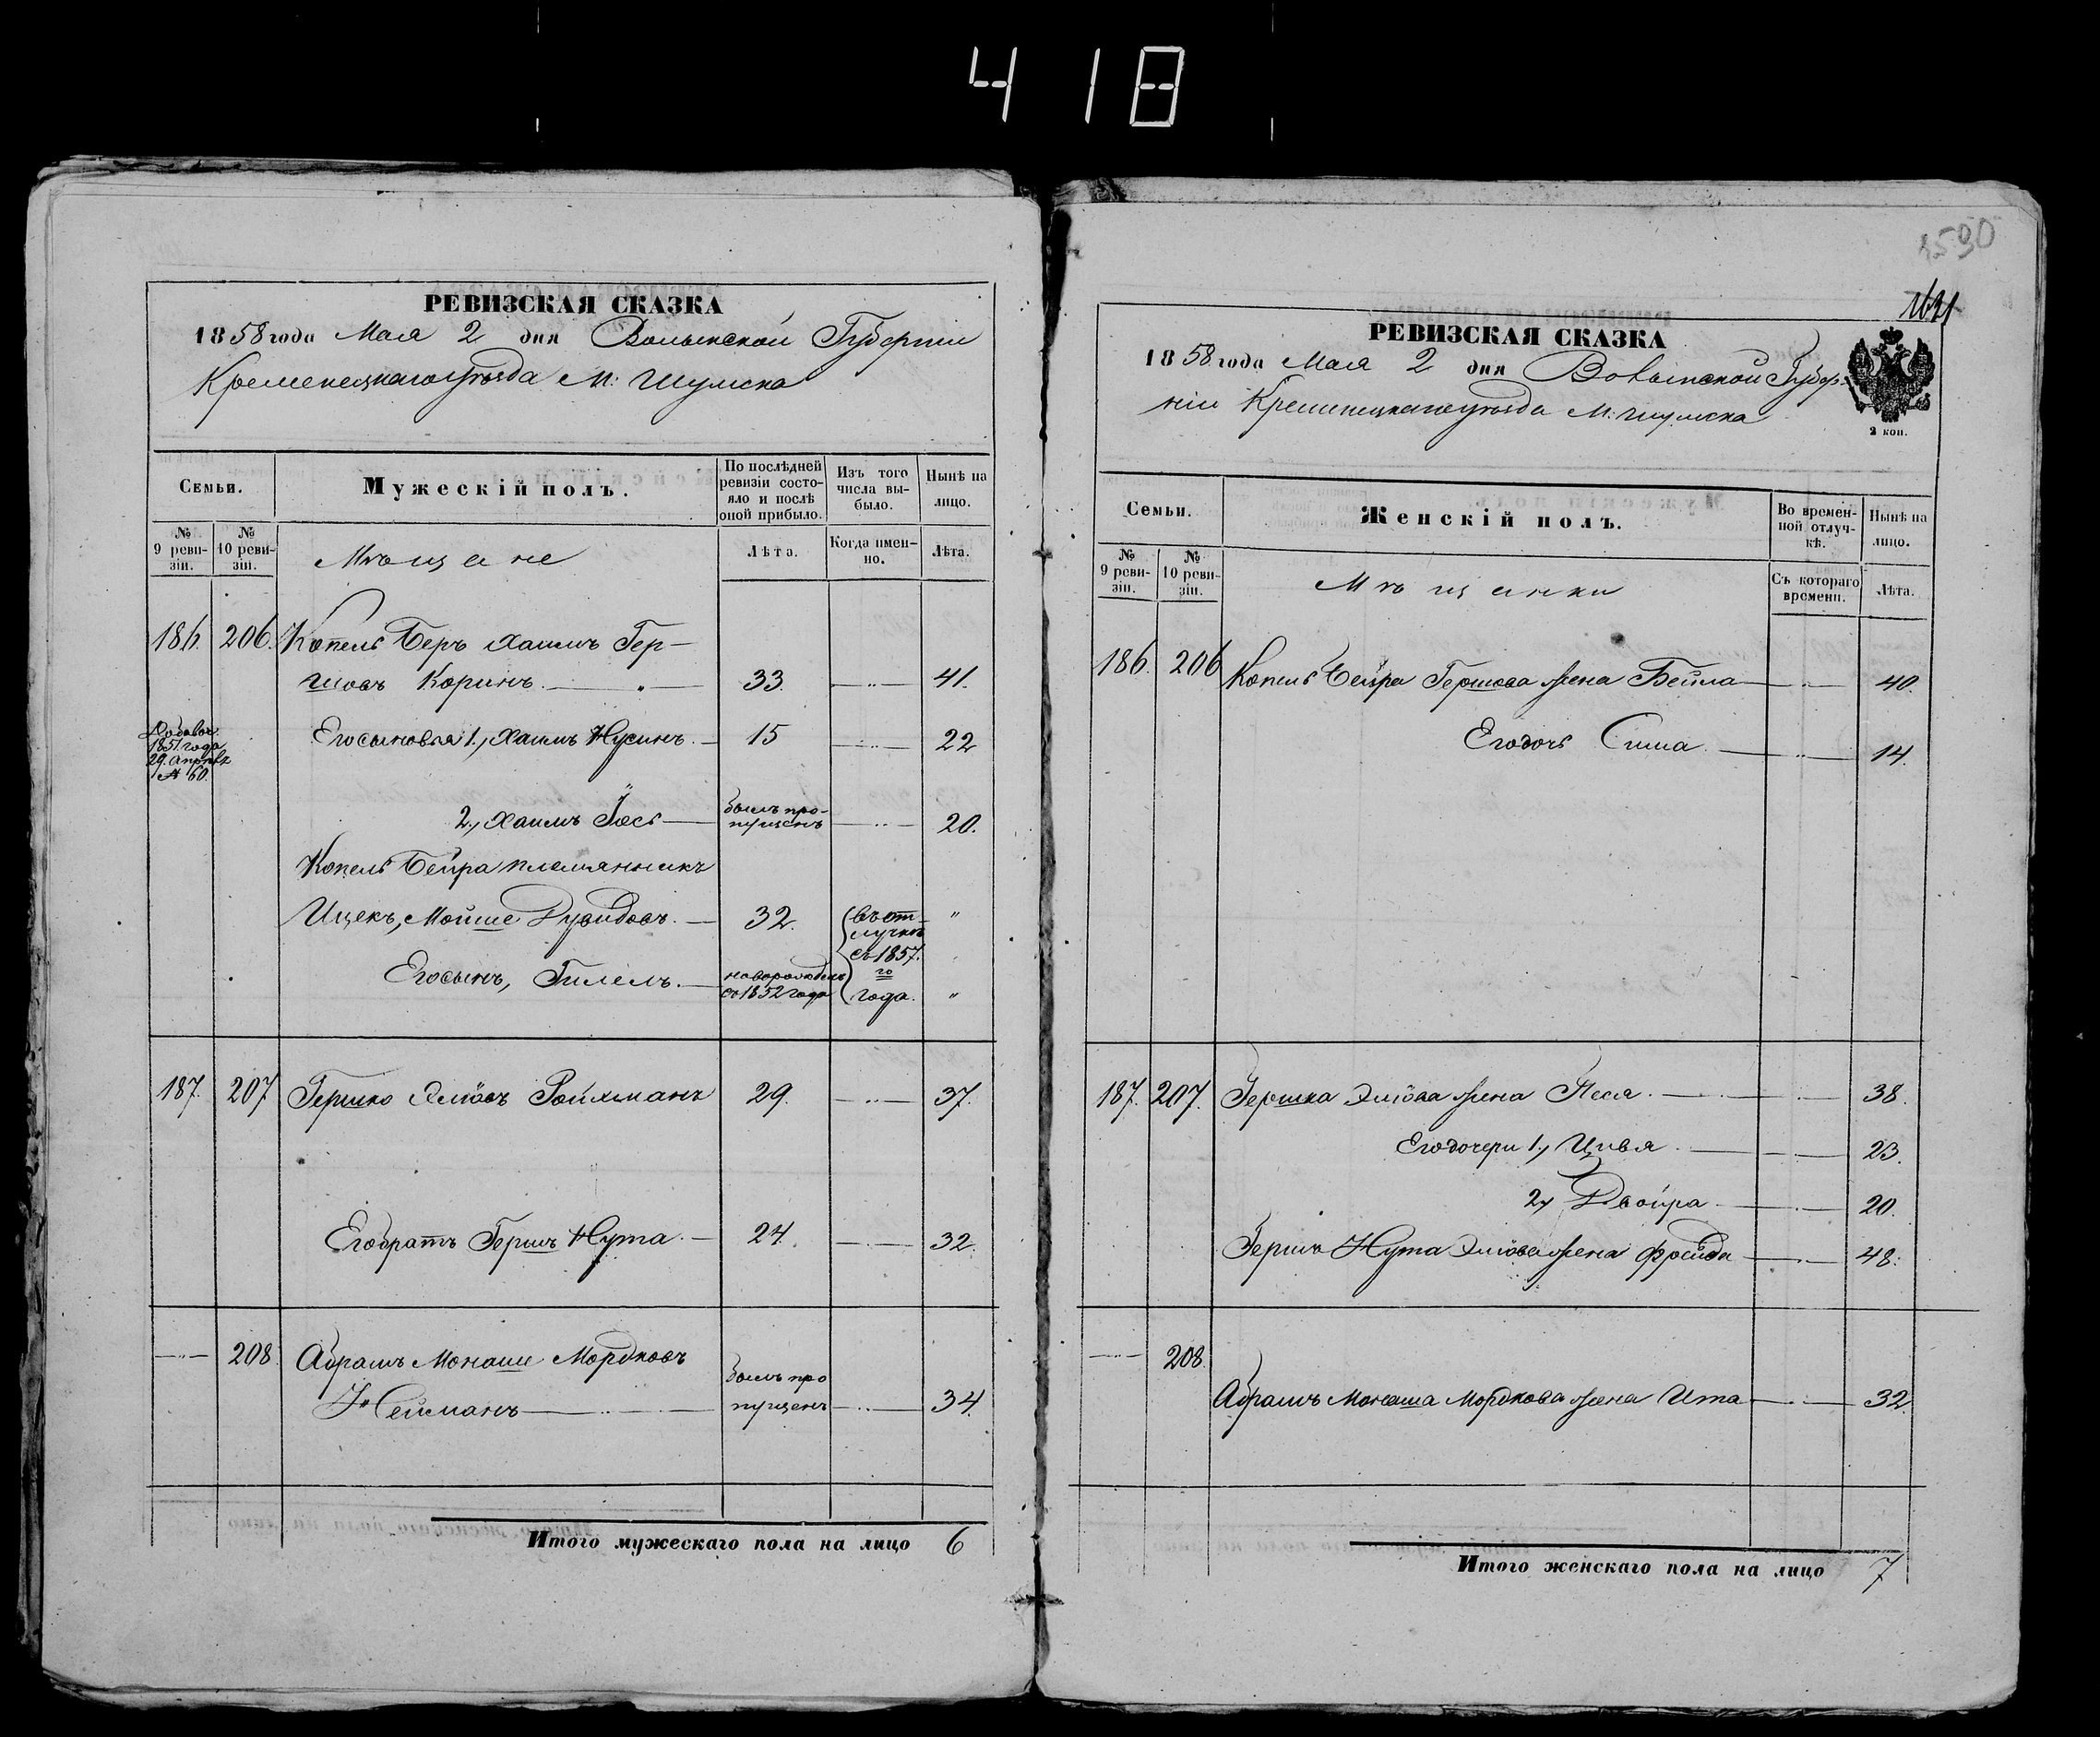 418
РЕВИЗСКАЯ СКАЗКА
1858 года Мая 2 дня Волынской Губерніи
Кременецкаго уѣзда М: Шумска
Семьи.
Мужескій полъ.
По послѣдней ревизіи состояло и послѣ оной прибыло.
Изъ того числа выбыло.
Нынѣ на лицо.
№ 9 ревизіи.
№ 10 ревизіи.
Мѣщане
Лѣта.
Когда именно.
Лѣта.
186. 206. Копель Беръ Хаимъ Гер-
шовъ Коринъ. 33. 41.
Добавоч. 1851 года 29. Апрѣля № 60.
Его сыновья 1., Хаимъ Нусинъ. 15 22
2., Хаимъ Іосъ былъ пропущенъ 20.
Копель Бейра племянникъ
Ицекъ, Мойше Дувидовъ. 32. въ отлучкѣ съ 1857.го года. "
Его сынъ, Гилель. новорожден съ 1852 года "
187. 207 Гершко Эліовъ Ройхманъ 29. 37.
Его братъ Гершъ Нута. 24. 32.
208. Абрамъ Монаши Мордковъ
Нейманъ былъ пропущенъ 34.
Итого мужескаго пола на лицо 6
1590
РЕВИЗСКАЯ СКАЗКА
1858 года Мая 2 дня Волынской Губер-
ніи Кременецкаго уѣзда М. Шумска
2 коп.
Семьи.
Женскій полъ.
Во временной отлучкѣ.
Нынѣ на лицо.
№ 9 ревизіи.
№ 10 ревизіи.
Мѣщанки
Съ котораго времени.
Лѣта.
186. 206 Копель Бейра Гершова жена Бейла 40.
Его дочь Сима. 14.
187. 207. Гершка Эліова жена Песя. 38.
Его дочери 1., Цивья. 23.
2., Двойра 20.
Гершъ Нута Эліова жена Фрейда 48.
208.
Абрамъ Монаша Мордкова жена Ита 32.
Итого женскаго пола на лицо 7